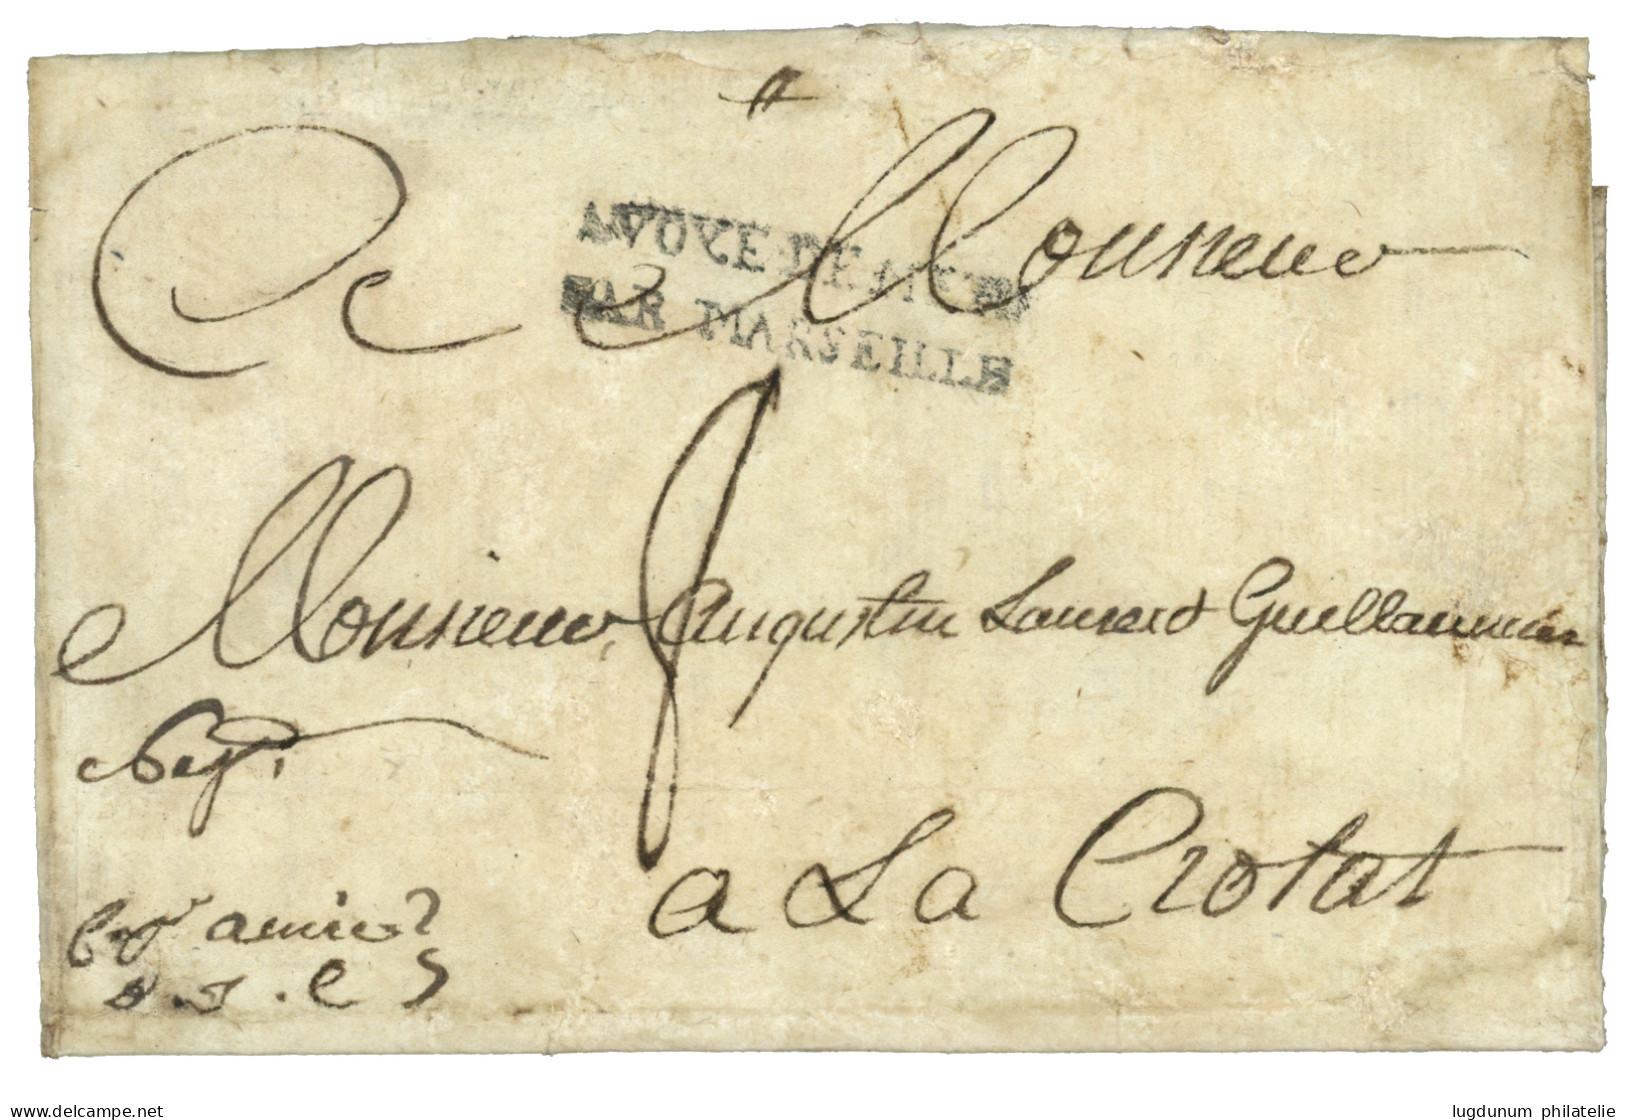 A Monsieur
AVOYE DE NICE
PAR MARSEILLE
Monsieur Augustin Laurend Guillaumier
Neg.t
a La Ciotat
amie
D. e S
www.delcampe.net
lugdunum philatelie